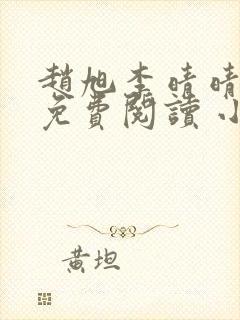 趙旭李晴晴
免費閱讀小
黃坦